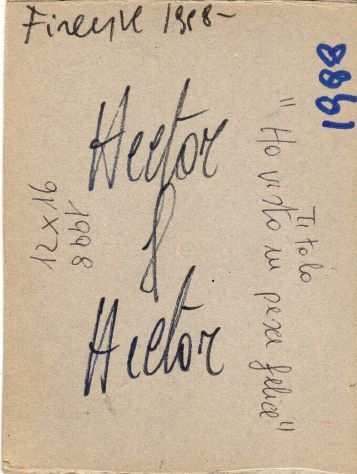 Firenze 1998-
1998
Hector
&
Hector
12x16
1998
Titolo
"Ho visto un pesce felice"